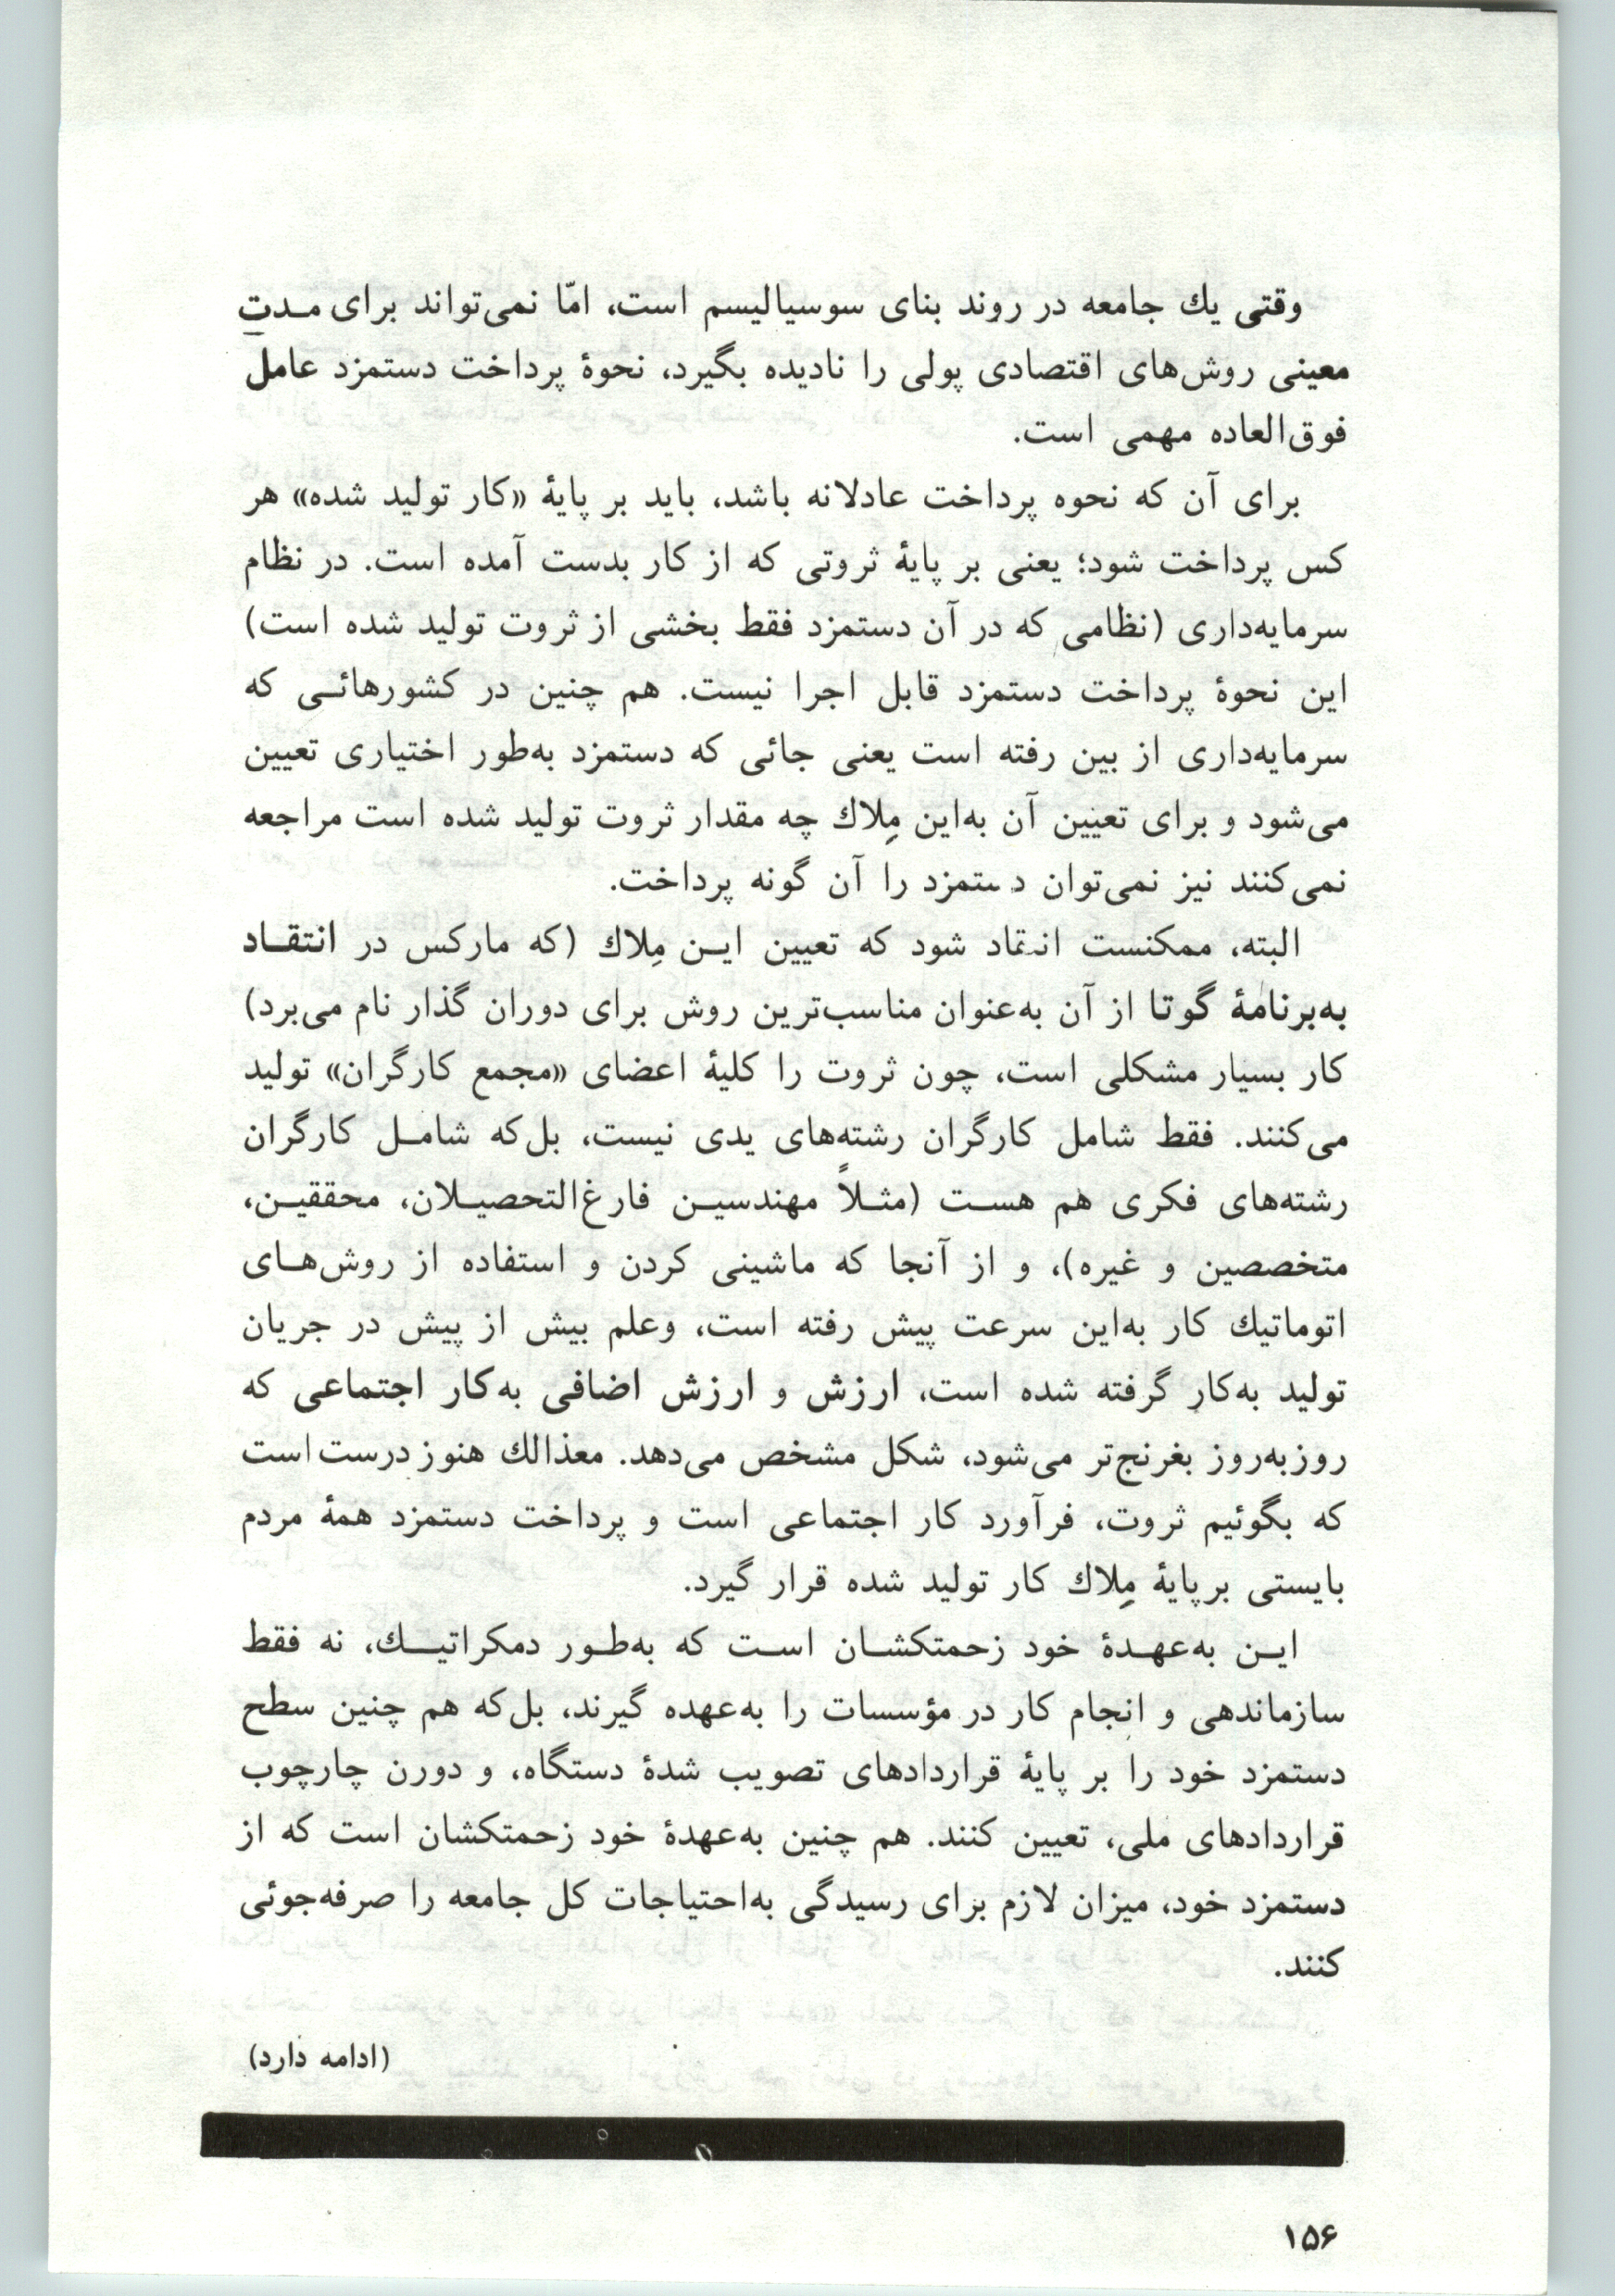 وقتی یك جامعه در روند بنای سوسیالیسم است، امّا نمی‌تواند برای مـدتِ
معینی روش‌های اقتصادی پولی را نادیده بگیرد، نحوهٔ پرداخت دستمزد عامل
فوق‌العاده مهمی است.
برای آن که نحوه پرداخت عادلانه باشد، باید بر پایهٔ «کار تولید شده» هر
کس پرداخت شود؛ یعنی بر پایهٔ ثروتی که از کار بدست آمده است. در نظام
سرمایه‌داری (نظامی که در آن دستمزد فقط بخشی از ثروت تولید شده است)
این نحوهٔ پرداخت دستمزد قابل اجرا نیست. هم چنین در کشورهائـی که
سرمایه‌داری از بین رفته است یعنی جائی که دستمزد به‌طور اختیاری تعیین
می‌شود و برای تعیین آن به‌این مِلاك چه مقدار ثروت تولید شده است مراجعه
نمی‌کنند نیز نمی‌توان دستمزد را آن گونه پرداخت.
البته، ممکنست انتقاد شود که تعیین ایـن مِلاك (که مارکس در انتقـاد
به‌برنامهٔ گوتا از آن به‌عنوان مناسب‌ترین روش برای دوران گذار نام می‌برد)
کار بسیار مشکلی است، چون ثروت را کلیهٔ اعضای «مجمع کارگران» تولید
می‌کنند. فقط شامل کارگران رشته‌های یدی نیست، بل‌که شامـل کارگران
رشته‌های فکری هم هسـت (مثـلاً مهندسیـن فارغ‌التحصیـلان، محققیـن،
متخصصین و غیره)، و از آنجا که ماشینی کردن و استفاده از روش‌هـای
اتوماتیك کار به‌این سرعت پیش رفته است، وعلم بیش از پیش در جریان
تولید به‌کار گرفته شده است، ارزش و ارزش اضافی به‌کار اجتماعی که
روزبه‌روز بغرنج‌تر می‌شود، شکل مشخص می‌دهد. معذالك هنوز درست است
که بگوئیم ثروت، فرآورد کار اجتماعی است و پرداخت دستمزد همهٔ مردم
بایستی برپایهٔ مِلاك کار تولید شده قرار گیرد.
ایـن به‌عهـدهٔ خود زحمتکشـان اسـت که به‌طـور دمکراتیـك، نه فقط
سازماندهی و انجام کار در مؤسسات را به‌عهده گیرند، بل‌که هم چنین سطح
دستمزد خود را بر پایهٔ قراردادهای تصویب شدهٔ دستگاه، و دورن چارچوب
قراردادهای ملی، تعیین کنند. هم چنین به‌عهدهٔ خود زحمتکشان است که از
دستمزد خود، میزان لازم برای رسیدگی به‌احتیاجات کل جامعه را صرفه‌جوئی
کنند.
(ادامه دارد)
۱۵۶